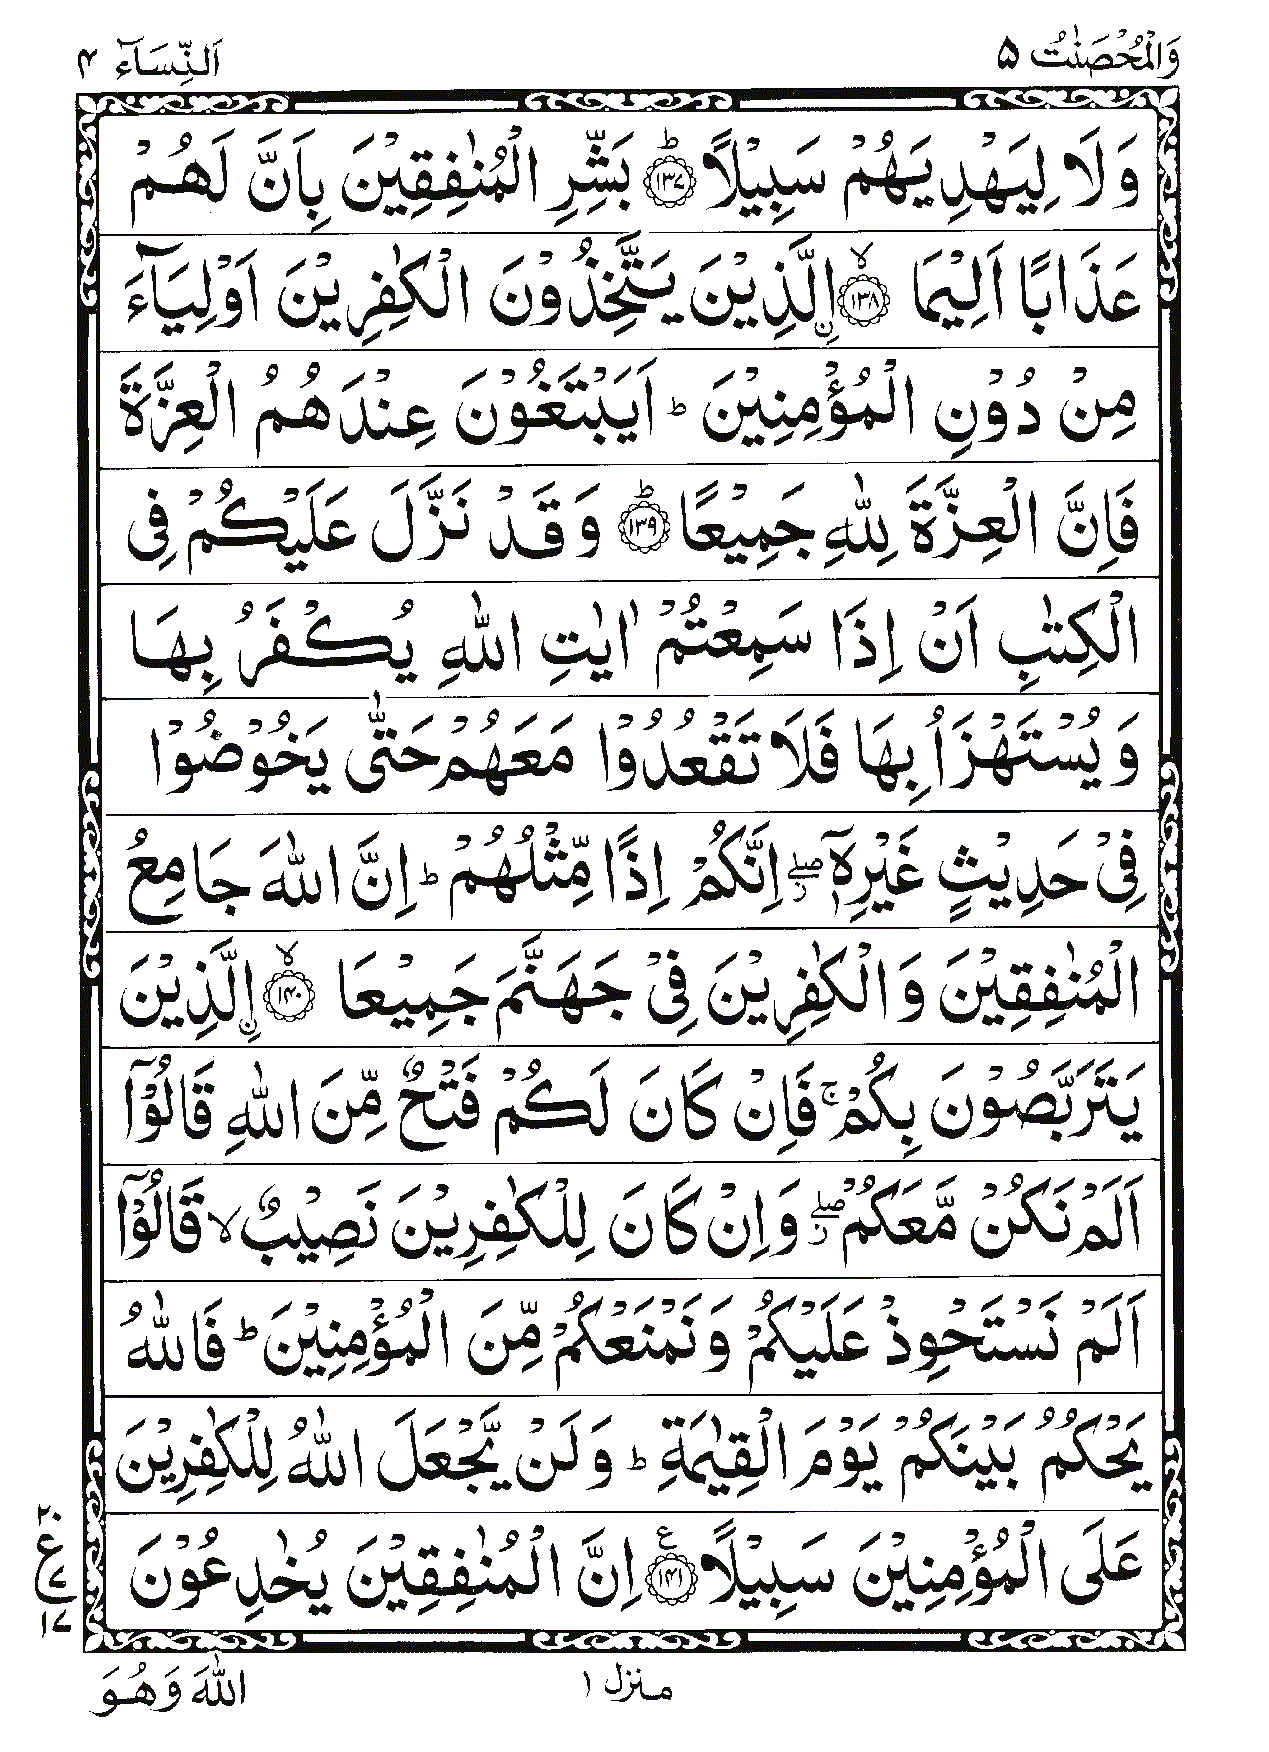 وَالْمُحْصَنٰتُ ۵ اَلنِّسَآءَ ۴
وَ لَا لِيَهْدِيَهُمْ سَبِيْلًا ؕ‏﴿۱۳۷﴾ بَشِّرِ الْمُنٰفِقِيْنَ بِاَنَّ لَهُمْ
عَذَابًا اَلِيْمَا ۙ‏﴿۱۳۸﴾ اۨلَّذِيْنَ يَتَّخِذُوْنَ الْكٰفِرِيْنَ اَوْلِيَآءَ
مِنْ دُوْنِ الْمُؤْمِنِيْنَ ؕ اَيَبْتَغُوْنَ عِنْدَهُمُ الْعِزَّةَ
فَاِنَّ الْعِزَّةَ لِلّٰهِ جَمِيْعًا ؕ‏﴿۱۳۹﴾ وَ قَدْ نَزَّلَ عَلَيْكُمْ فِى
الْكِتٰبِ اَنْ اِذَا سَمِعْتُمْ اٰيٰتِ اللّٰهِ يُكْفَرُ بِهَا
وَ يُسْتَهْزَاُ بِهَا فَلَا تَقْعُدُوْا مَعَهُمْ حَتّٰى يَخُوْضُوْا
فِىْ حَدِيْثٍ غَيْرِهٖۤ ۖ اِنَّكُمْ اِذًا مِّثْلُهُمْ ؕ اِنَّ اللّٰهَ جَامِعُ
الْمُنٰفِقِيْنَ وَ الْكٰفِرِيْنَ فِىْ جَهَنَّمَ جَمِيْعَا ۙ‏﴿۱۴۰﴾ اۨلَّذِيْنَ
يَتَرَبَّصُوْنَ بِكُمْ ۚ فَاِنْ كَانَ لَكُمْ فَتْحٌ مِّنَ اللّٰهِ قَالُوْۤا
اَلَمْ نَكُنْ مَّعَكُمْ ۖ وَاِنْ كَانَ لِلْكٰفِرِيْنَ نَصِيْبٌ ۙ قَالُوْۤا
اَلَمْ نَسْتَحْوِذْ عَلَيْكُمْ وَنَمْنَعْكُمْ مِّنَ الْمُؤْمِنِيْنَ ؕ فَاللّٰهُ
يَحْكُمُ بَيْنَكُمْ يَوْمَ الْقِيٰمَةِ ؕ وَلَنْ يَّجْعَلَ اللّٰهُ لِلْكٰفِرِيْنَ
عَلَى الْمُؤْمِنِيْنَ سَبِيْلًا ‏﴿۱۴۱﴾ اِنَّ الْمُنٰفِقِيْنَ يُخٰدِعُوْنَ
۲۰
ع
۷
۱۷
منزل ۱
اللّٰهَ وَهُوَ